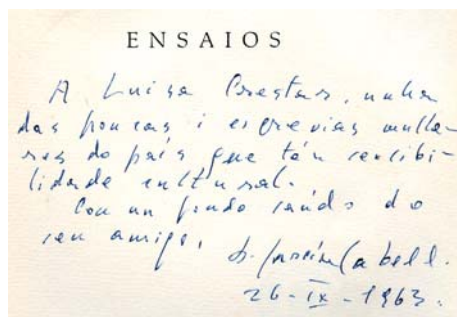 ENSAIOS
A Luisa Crestar, unha
das poucas i egrexias mulle-
res do país que tén sensibi-
lidade cultural.
Con un fondo saúdo do
seu amigo,
D. García-Sabell.
26-IX-1963.